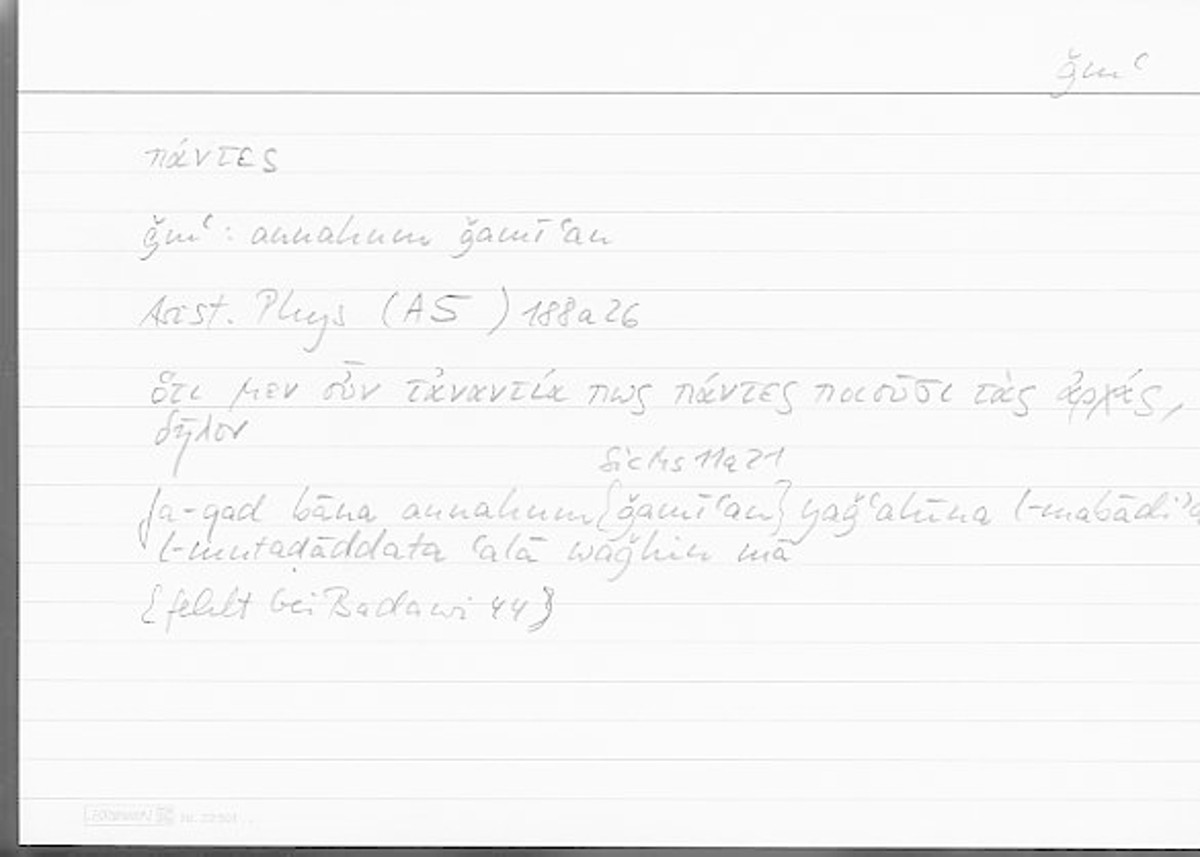 ǧmʿ
πάντες
ǧmʿ: annahum ǧamīʿan
Arist. Phys (A5 ) 188a26
ὅτι μεν οὖν τἀναντία πως πάντες ποιοῦσι τὰς ἀρχάς,
δῆλον
11a21
fa-qad bāna annahum {ǧamīʿan} yaǧʿalūna l-mabādiʾa
l-mutaḍāddata ʿalā waǧhin mā
{fehlt bei Badawi 44}